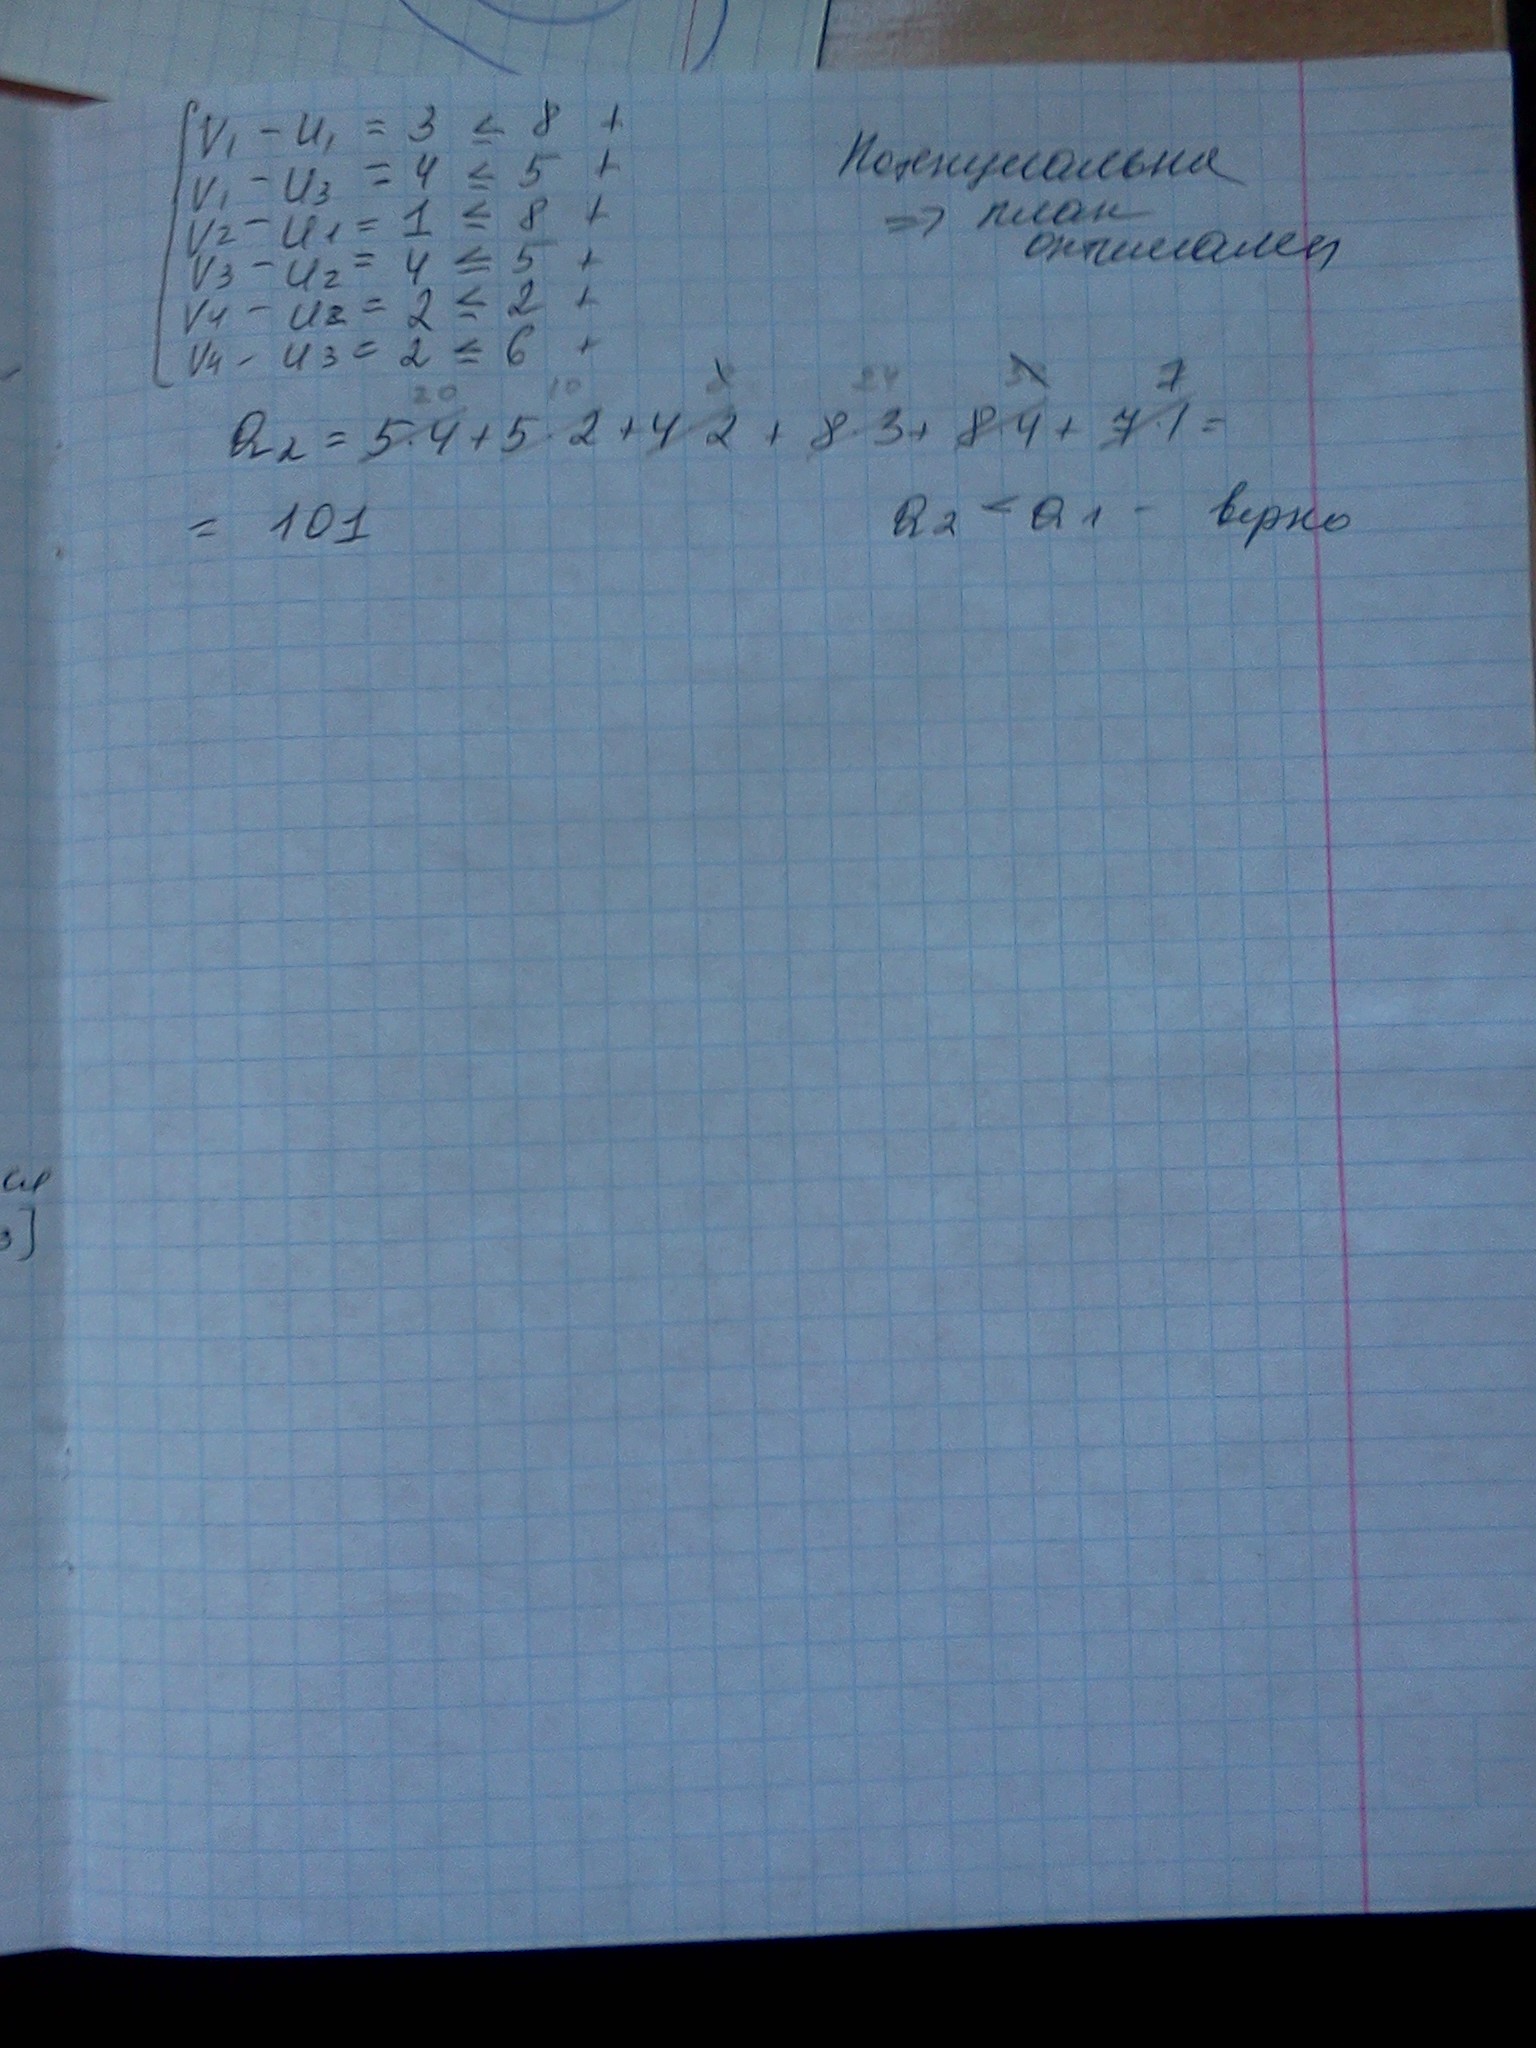 V₁ - U₁ = 3 ≤ 8 +
V₁ - U₃ = 4 ≤ 5 +
V₂ - U₁ = 1 ≤ 8 +
V₃ - U₂ = 4 ≤ 5 +
V₄ - U₂ = 2 ≤ 2 +
V₄ - U₃ = 2 ≤ 6 +
Потенциальна
=> план
оптимален
20 10 8 24 32 7
Q₂ = 5·4 + 5·2 + 4·2 + 8·3 + 8·4 + 7·1 =
= 101
Q₂ < Q₁ - верно
3]